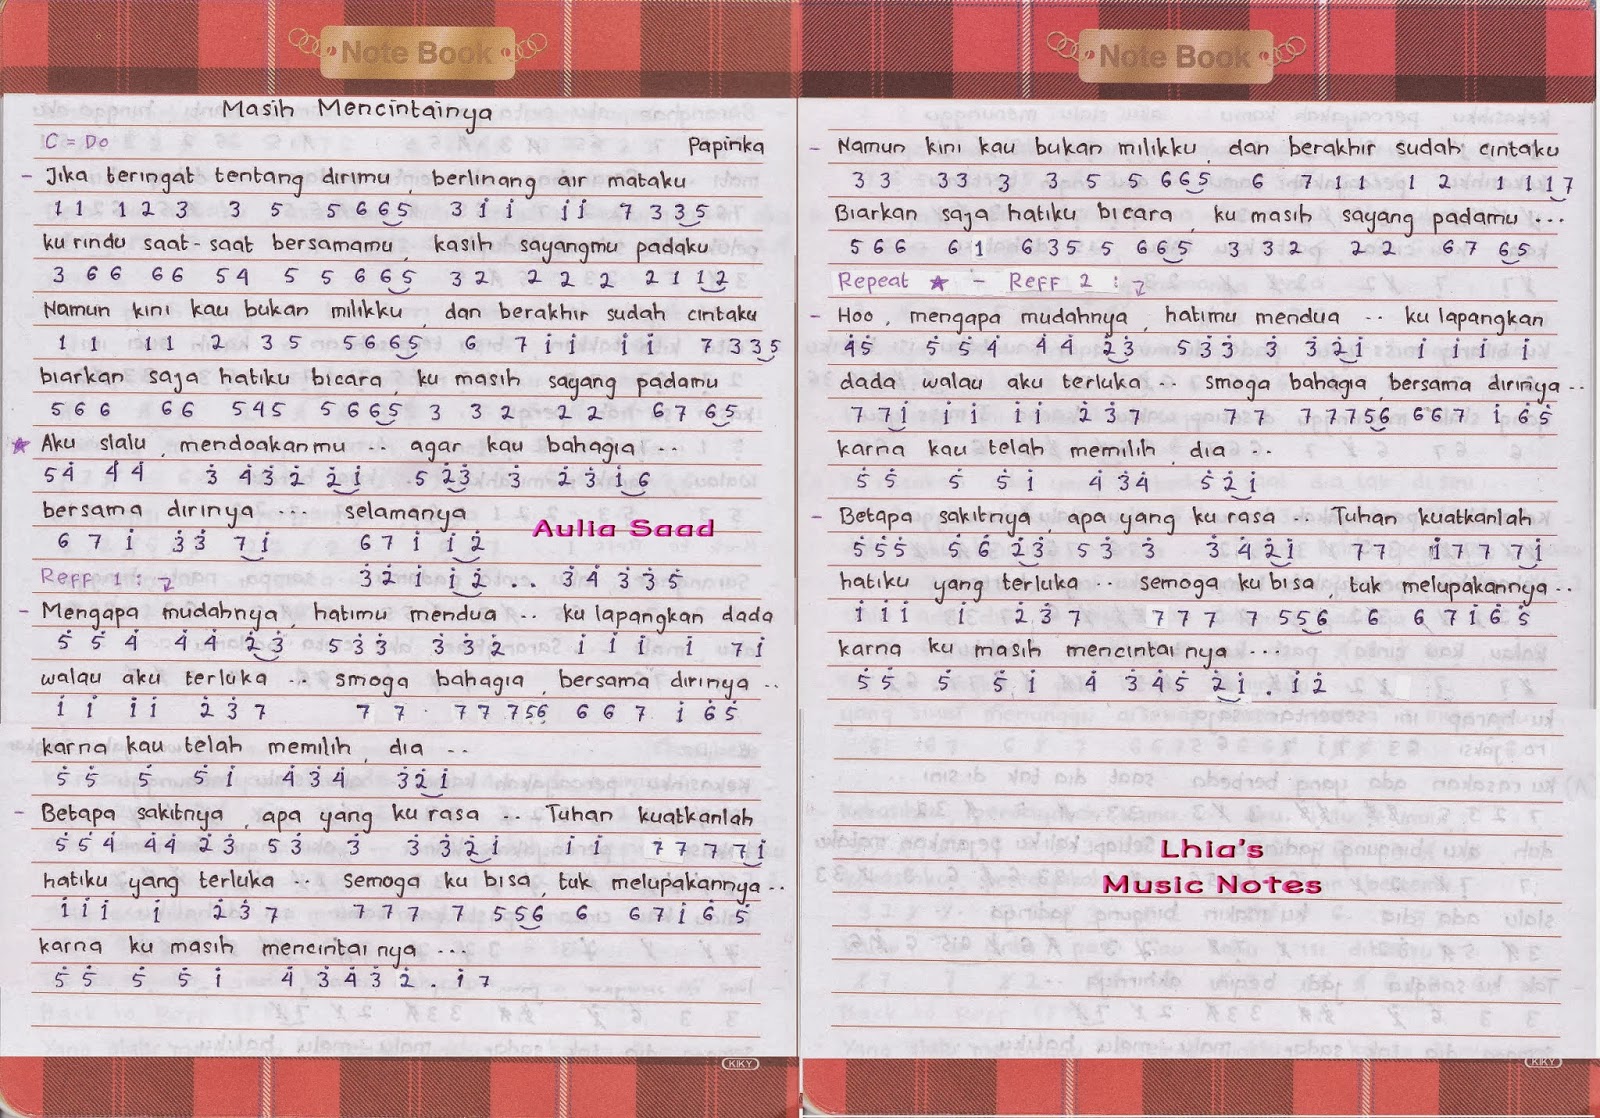 Note Book
Masih Mencintainya
C = Do
Papinka
- Jika teringat tentang dirimu berlinang air mataku
1 1 1 2 3 3 5 5 6 6 5 3 i i i i 7 3 3 5
ku rindu saat-saat bersamamu, kasih sayangmu padaku
3 6 6 6 6 5 4 5 5 6 6 5 3 2 2 2 2 2 1 1 2
Namun kini kau bukan milikku, dan berakhir sudah cintaku
1 1 1 1 2 3 5 5 6 6 5 6 7 i i i i 7 3 3 5
biarkan saja hatiku bicara, ku masih sayang padamu
5 6 6 6 6 5 4 5 5 6 6 5 3 3 2 2 2 6 7 6 5
★ Aku slalu, mendoakanmu .. agar kau bahagia ..
5 4̇ 4̇ 4̇ 3̇ 4̇ 3̇ 2̇ 2̇ i 5 2̇ 3̇ 3̇ 2̇ 3̇ i 6
bersama dirinya ... selamanya
6 7 i 3̇ 3̇ 7 i 6 7 i i 2̇
Aulia Saad
Reff 1 : ↴ 3̇ 2̇ i i 2̇ . . 3̇ 4̇ 3̇ 3̇ 5̇
- Mengapa mudahnya hatimu mendua .. ku lapangkan dada
5̇ 5̇ 4̇ 4̇ 4̇ 2̇ 3̇ 5̇ 3̇ 3̇ 3̇ 3̇ 2̇ i i i i 7 i
walau aku terluka ... smoga bahagia, bersama dirinya ..
i i i i 2̇ 3̇ 7 7 7 7 7 7 5 6 6 6 7 i 6̇ 5̇
karna kau telah memilih, dia ..
5̇ 5̇ 5̇ 5̇ i 4̇ 3̇ 4̇ 3̇ 2̇ i
- Betapa sakitnya, apa yang ku rasa .. Tuhan kuatkanlah
5̇ 5̇ 4̇ 4̇ 4̇ 2̇ 3̇ 5̇ 3̇ 3̇ 3̇ 3̇ 2̇ i i i 7 7 7 7 i
hatiku yang terluka ... semoga ku bisa, tuk melupakannya ..
i i i i 2̇ 3̇ 7 7 7 7 7 5 5 6 6 6 7 i 6̇ 5̇
karna ku masih mencintainya ...
5̇ 5̇ 5̇ 5̇ i 4̇ 3̇ 4̇ 3̇ 2̇ . i 7
KIKY
Note Book
- Namun kini kau bukan milikku, dan berakhir sudah cintaku
3 3 3 3 3 3 5 5 6 6 5 6 7 1 1 1 2 1 1 1 7
Biarkan saja hatiku bicara, ku masih sayang padamu ...
5 6 6 6 1 6 3 5 5 6 6 5 3 3 2 2 2 6 7 6 5
Repeat ★ - Reff 2 : ↴
- Hoo, mengapa mudahnya, hatimu mendua .. ku lapangkan
4̇ 5̇ 5̇ 5̇ 4̇ 4̇ 4̇ 2̇ 3̇ 5̇ 3̇ 3̇ 3̇ 3̇ 2̇ i i i i i
dada walau aku terluka .. smoga bahagia, bersama dirinya ..
7 7 i i i i i 2̇ 3̇ 7 7 7 7 7 7 5 6 6 6 7 i 6̇ 5̇
karna kau telah memilih, dia ..
5̇ 5̇ 5̇ 5̇ i 4̇ 3̇ 4̇ 5̇ 2̇ i
- Betapa sakitnya apa yang ku rasa .. Tuhan kuatkanlah
5̇ 5̇ 5̇ 5̇ 6̇ 2̇ 3̇ 5̇ 3̇ 3̇ 3̇ 4̇ 2̇ i 7 7 i 7 7 7 i
hatiku yang terluka .. semoga ku bisa, tuk melupakannya ..
i i i i 2̇ 3̇ 7 7 7 7 7 5 5 6 6 6 7 i 6̇ 5̇
karna ku masih mencintainya ...
5̇ 5̇ 5̇ 5̇ i 4̇ 3̇ 4̇ 5̇ 2̇ i . i 2̇
Lhia's
Music Notes
KIKY